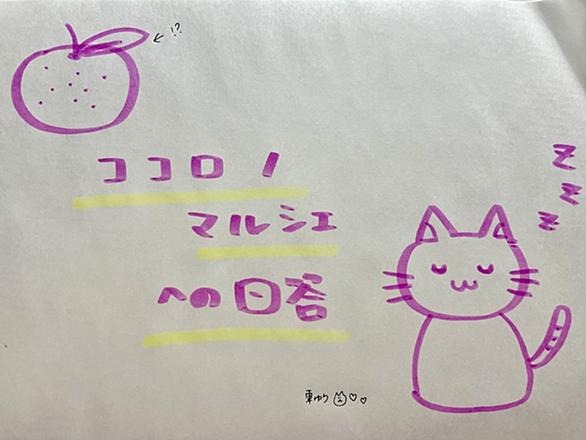 !?
ココロノ
マルシェ
への回答
z
z
z
東ゆり